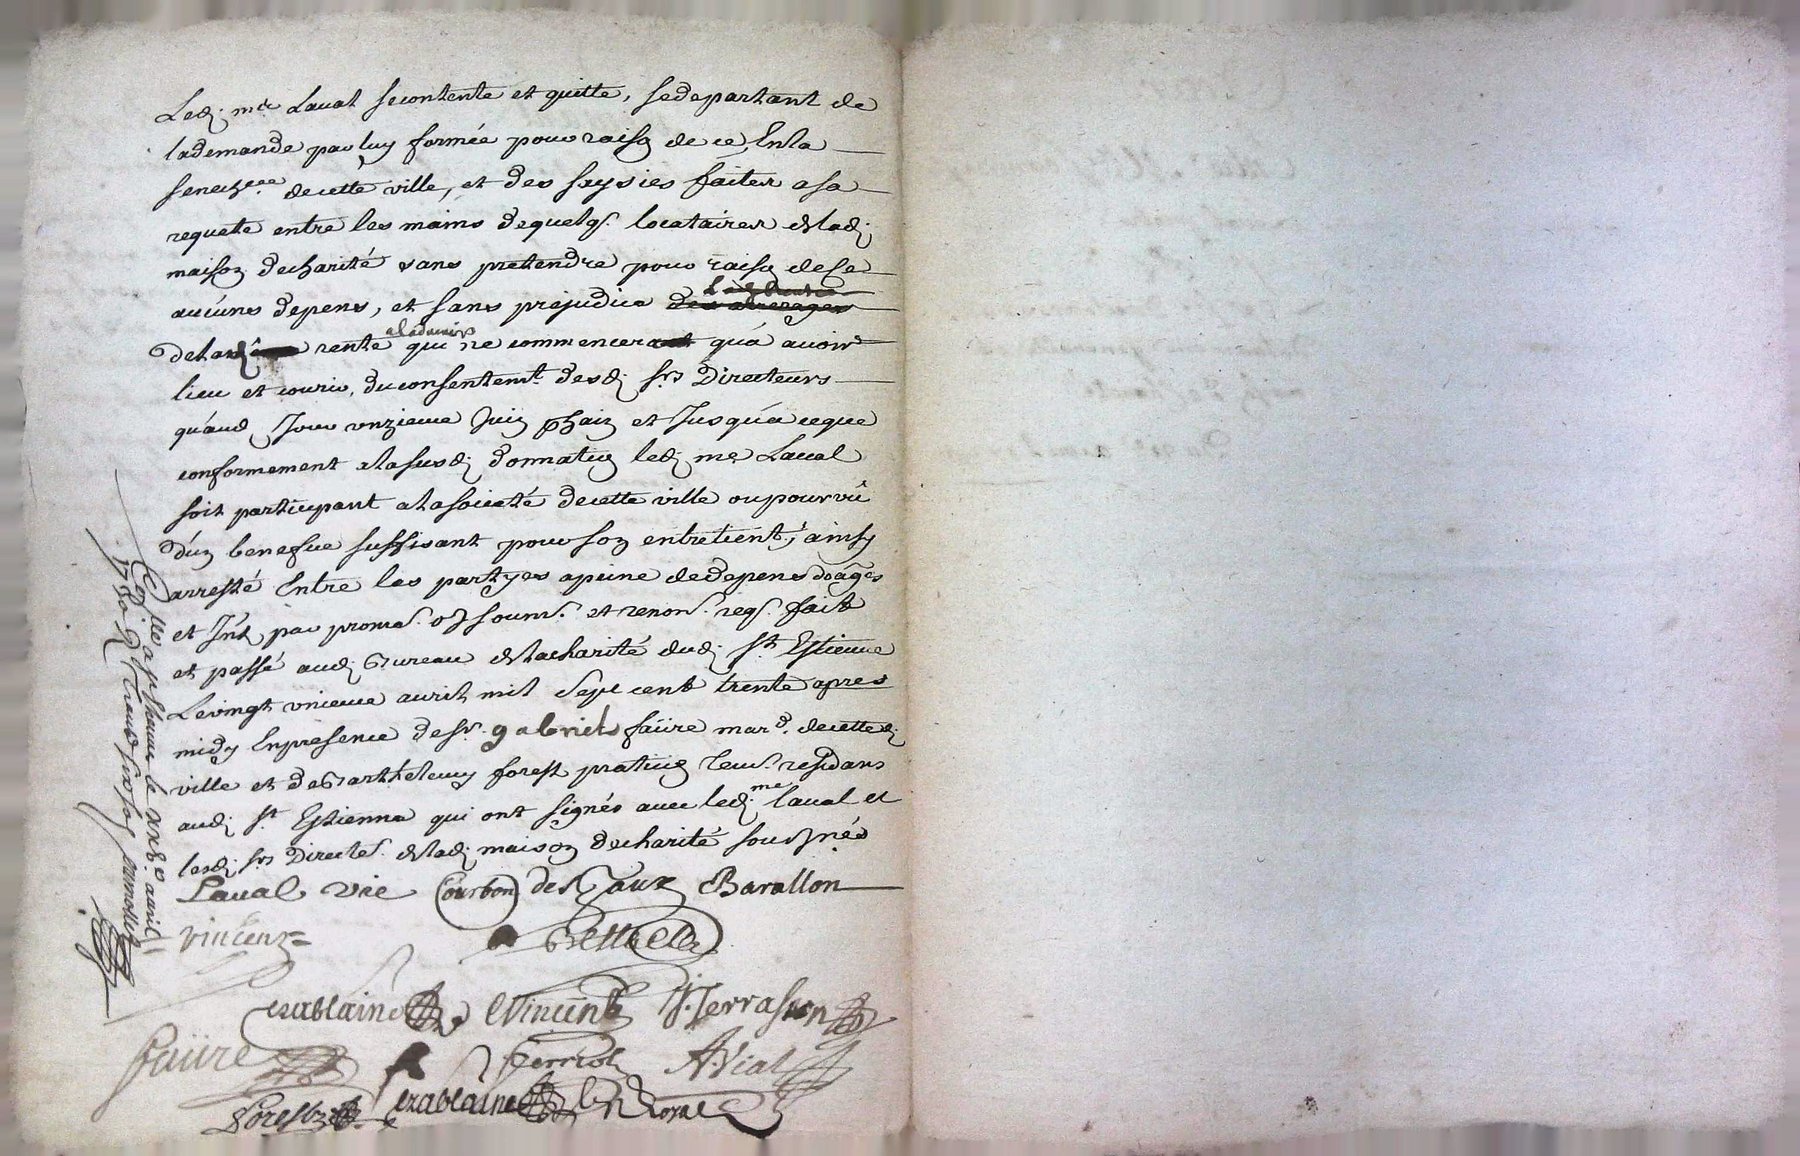 Led. me Laval se contente et quitte, se departant de
la demande par luy formée pour raison de ce, En la
senechee de cette ville, et des saysies faites a sa
requete entre les mains de quelqs. locataires de lad.
maison de charité sans pretendre pour raison de ce
aucuns depens, et sans prejudice des arrerages
de lad. rente a ladvenir qui ne commencera qu'a avoir
lieu et courir, du consentemt. desd. srs Directeurs
qu'aud. Jour onzieme Juin pchain et Jusqu'a ce que
conformement a la susd. donnation led. me Laval
soit participant a la societé de cette ville ou pourvû
d'un benefice suffisant pour son entretient, ainsy
arresté Entre les partyes a peine de depens domages
et Int. par promes. soums. et renon. reqs. fait
et passé aud. Bureau de la charité dud. St. Estienne
Le vingt unieme avril mil sept cent trente apres
midy En presence de sr. gabriel faüre mard. de cette d.
ville et de Barthelemy forest praticien residans
aud. St. Estienne qui ont signés avec led. me laval et
lesd. srs Directrs. de lad. maison de charité sousnés
Laval vic Courbon des Gaux Barallon
Vincent
Bessel
Vincent J. Terrasson
faüre Ferriol A. Vial
Forest
Con.lle a st Estienne le avril
1730 R